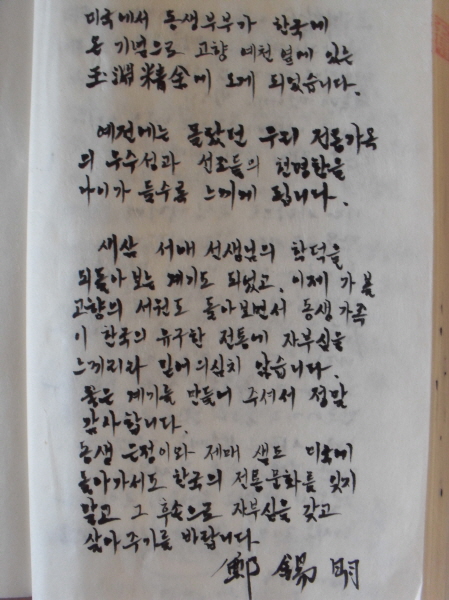 미국에서 동생부부가 한국에
온 기념으로 고향 예천 옆에 있는
玉淵精舍에 오게 되었습니다.
예전에는 몰랐던 우리 전통가옥
의 우수성과 선조들의 현명함을
나이가 들수록 느끼게 됩니다.
새삼 서애 선생님의 학덕을
되돌아보는 계기도 되었고, 이제 가볼
고향의 서원도 돌아보면서 동생 가족
이 한국의 유구한 전통에 자부심을
느끼리라 믿어 의심치 않습니다.
좋은 계기를 만들어 주셔서 정말
감사합니다.
동생 은정이와 제매 샘도 미국에
돌아가서도 한국의 전통문화를 잊지
말고 그 후손으로 자부심을 갖고
살아주기를 바랍니다.
鄭錫明